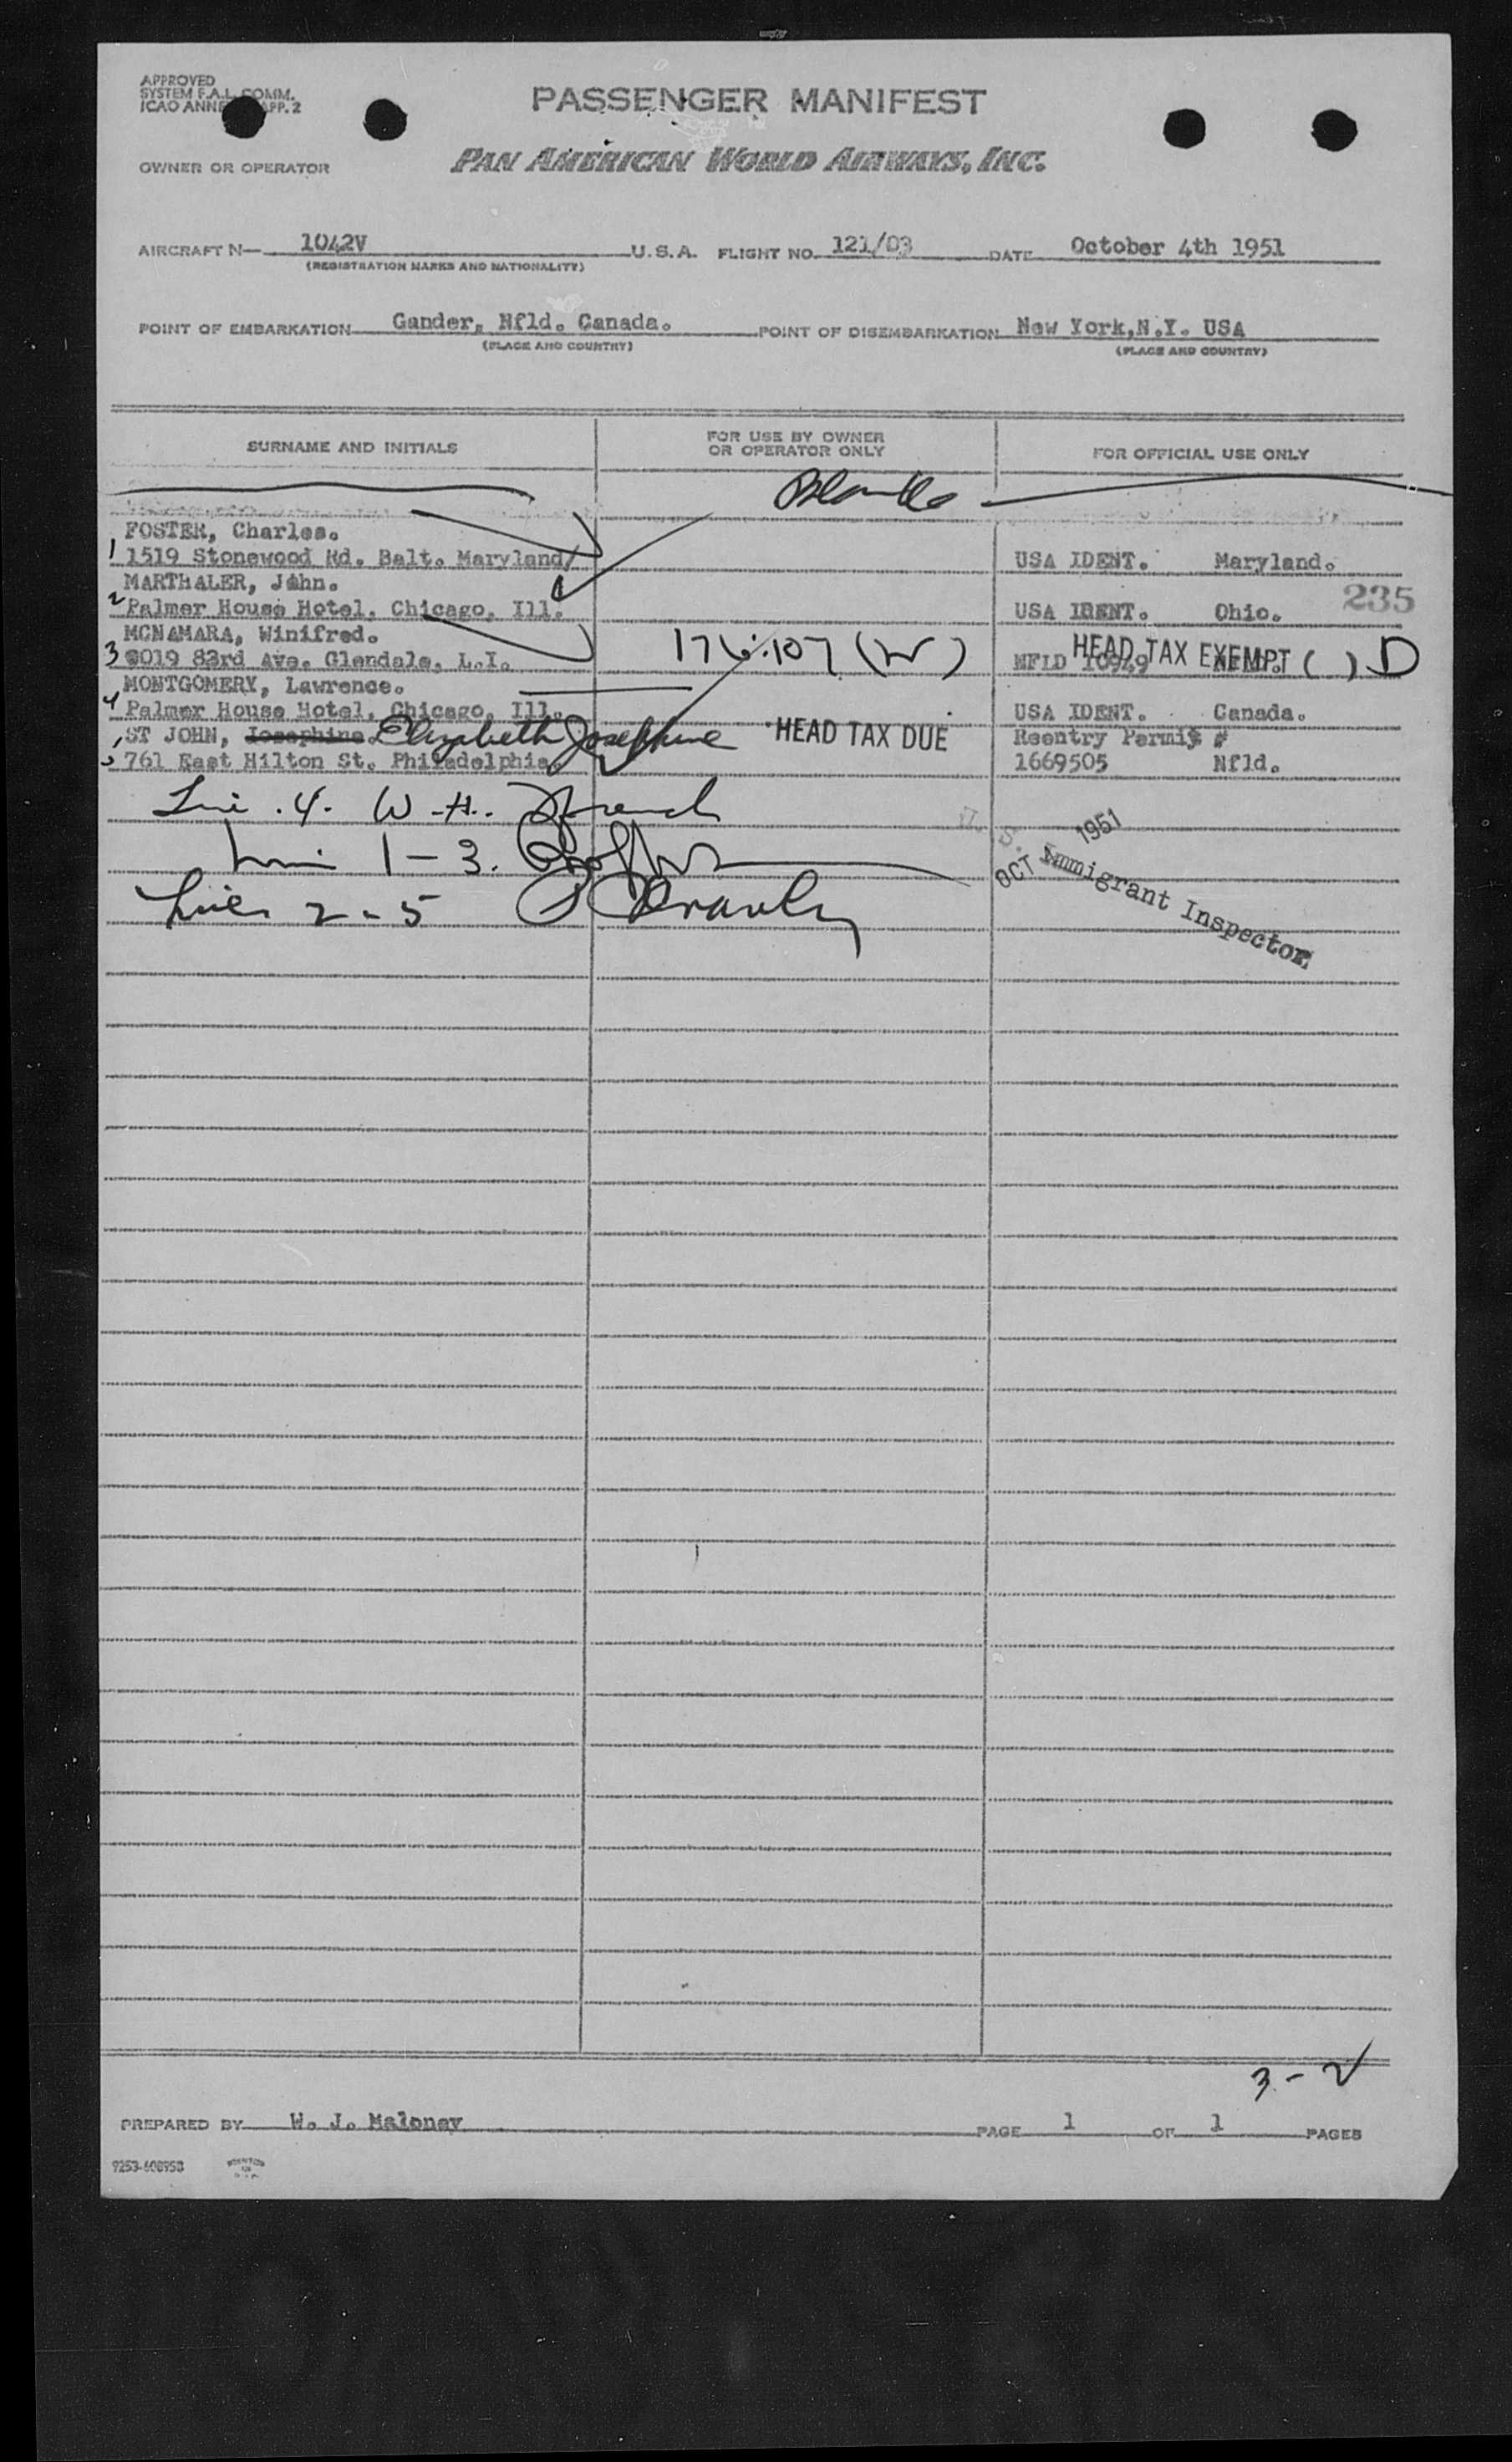 APPROVED
SYSTEM F.A.L. COMM.
ICAO ANNE APP. 2
PASSENGER MANIFEST
OWNER OR OPERATOR
PAN AMERICAN WORLD AIRWAYS, INC.
AIRCRAFT N— 1042V U.S.A. FLIGHT NO. 121/03 DATE October 4th 1951
(REGISTRATION MARKS AND NATIONALITY)
POINT OF EMBARKATION Gander, Nfld. Canada. POINT OF DISEMBARKATION New York, N.Y. USA
(PLACE AND COUNTRY) (PLACE AND COUNTRY)
SURNAME AND INITIALS FOR USE BY OWNER OR OPERATOR ONLY FOR OFFICIAL USE ONLY
FOSTER, Charles.
1 1519 Stonewood Rd. Balt. Maryland/ USA IDENT. Maryland.
MARTHALER, John.
235
2 Palmer House Hotel, Chicago, Ill. USA IDENT. Ohio.
MCNAMARA, Winifred.
3 8019 83rd Ave. Glendale, L.I. 176:107 (W) NFLD 10949 HEAD TAX EXEMPT ( ) D
MONTGOMERY, Lawrence.
4 Palmer House Hotel, Chicago, Ill. USA IDENT. Canada.
ST JOHN, Josephine. Elizabeth Josephine HEAD TAX DUE Reentry Permit #
5 761 East Hilton St. Philadelphia. 1669505 Nfld.
Line 4. W.H.
Line 1-3.
Lines 2-5
OCT 1951
U. S. Immigrant Inspector
3-2
PREPARED BY W. J. Maloney PAGE 1 OF 1 PAGES
9253-608958